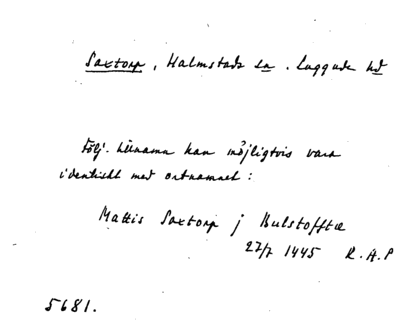 Saxtorp, Halmstads sn. Luggude hd
Följ. binamn kan möjligtvis vara
identiskt med ortnamnet:
Mattis Saxtorp j Bulstoffte
27/7 1445 R.A.P
5681.